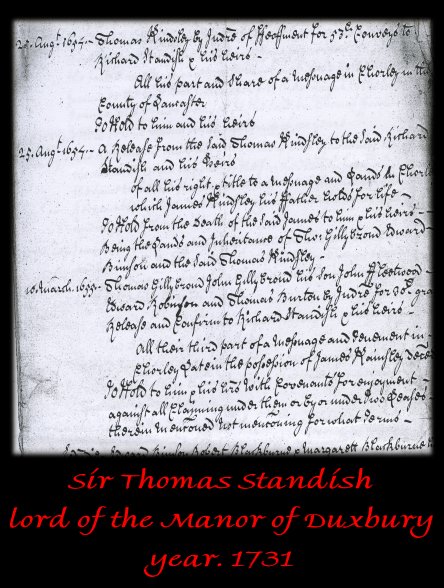 25. Augt. 1657.— Thomas Hindsley by Indre of ffeoffment for 53li. Conveys to
Richard Standish & his heirs —
All his part and share of a Mesuage in Chorley in the
County of Lancaster
To Hold to him and his heirs
25. Augt. 1657.— A Release from the said Thomas Hindsley to the Said Richard
Standish and his Heirs
of all his right & title to a Mesuage and Lands in Chorley
which James Hindsley his ffather holds for life —
To Hold from the Death of the said James to him & his heirs —
Being the Lands and Inheritance of Tho: Gillybrond Edward
and the Said Thomas Hindsley —
10. March. Thomas Gillybrond John Gillybrond his son John ffleetwood —
Edward Robinson and Thomas Burton by Indre for
Release and Confirm to Richard Standish & his heirs —
All their third part of a Mesuage and tenement in
Chorley Late in the possession of James Hainsley
To Hold to him & his hrs With Covenants for enjoyment —
against all Claiming under them or by or under two Leases
therein mentioned not mentioning for what Terms —
Robert Blackburne & Margarett Blackburne
Sir Thomas Standish
lord of the Manor of Duxbury
year. 1731